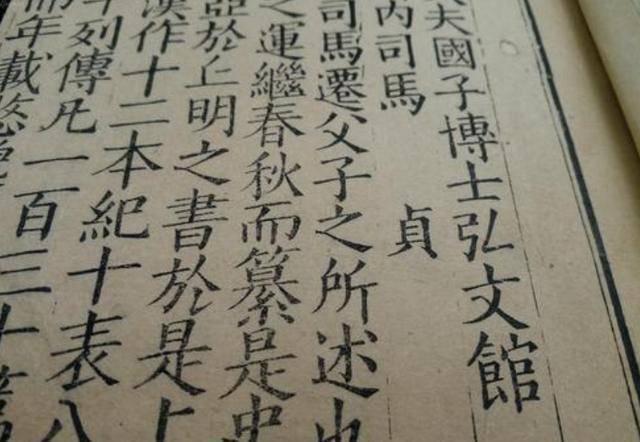 夫國子博士弘文館
內司馬 貞
司馬遷父子之所述也
之運繼春秋而纂是史
亞於丘明之書於是上
漢作十二本紀十表八
列傳凡一百三十
年載悠